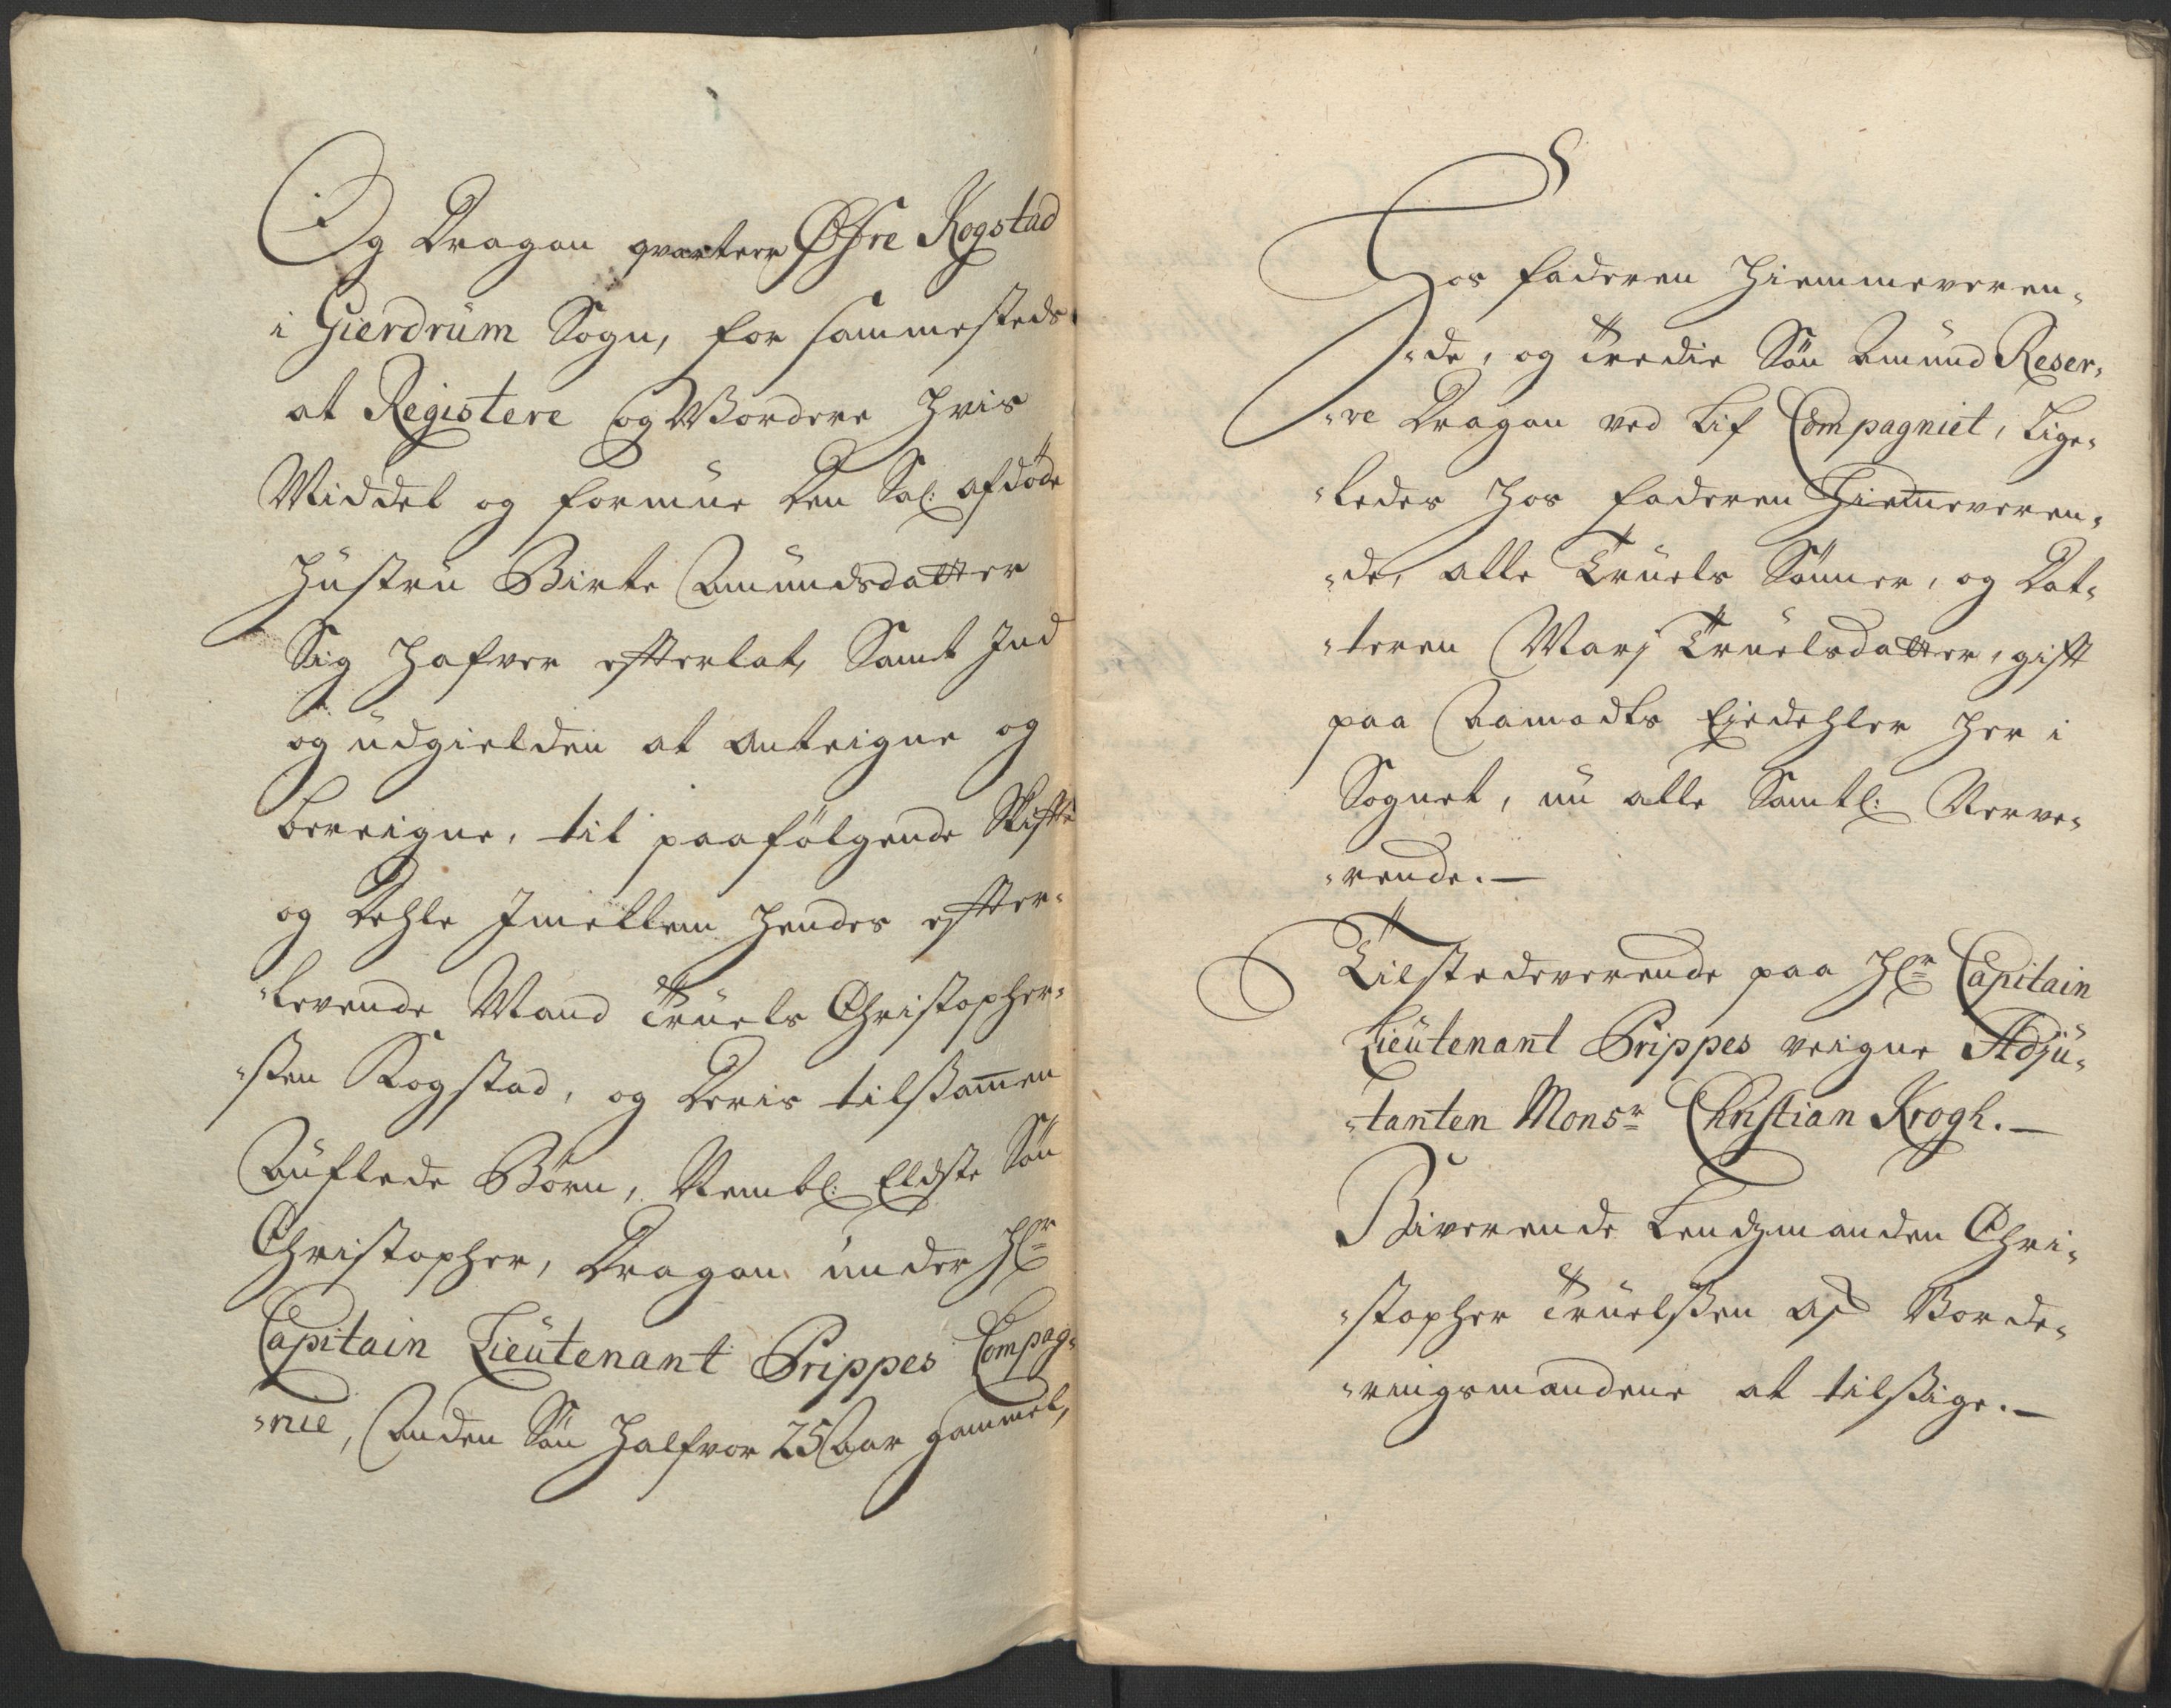 Og Dragon qvarteer Øfre Kogstad
i Gierdrum Sogn, for sammesteds
at Registere og Wordere hvis
Middel og formue den Sal: afdøde
Hustru Birte Amundsdatter
Sig hafver efterlat, Samt Ind
og udgielden at anteigne og
bereigne, til paafølgende Skifte
og Dehle Imellem hendes efter-
-levende Mand Truels Christopher-
-sen Kogstad, og deris tilsammen
Auflede Børn, Nembl: Eldste Søn
Christopher, Dragon under Hr
Capitain Lieutenant Grippes Compag-
-nie, Anden Søn Halfvor 25 Aar gammel,
Hos faderen Hiemmeveren-
-de, og Tredie Søn Amund Reser-
-ve Dragon ved Lif Compagniet, Lige-
-ledes hos faderen Hiemmeveren-
-de, alle Truels Sønner, og Dat-
-teren Marj Truelsdatter, gift
paa Aamodts Eiedehler her i
Sognet, nu alle Samtl: Nerve-
-rende.—
Tilstedeverende paa Hr Capitain
Lieutenant Grippes veigne Adju-
-tanten Monsr Christian Krogh.—
Biverende Lendsmanden Chri-
-stopher Truelssen og Worde-
-ringsmandene at tilsige.—